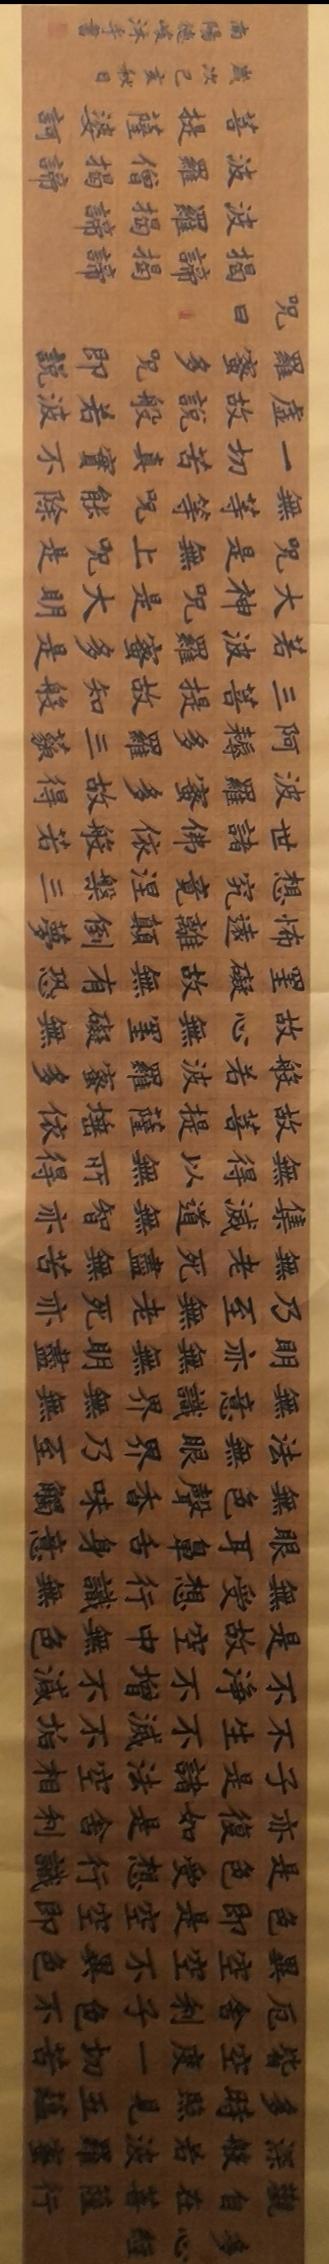 多心經
觀自在菩薩行
深般若波羅蜜
多時照見五蘊
皆空度一切苦
厄舍利子色不
異空空不異色
色即是空空即
是色受想行識
亦復如是舍利
子是諸法空相
不生不滅不垢
不淨不增不減
是故空中無色
無受想行識無
眼耳鼻舌身意
無色聲香味觸
法無眼界乃至
無意識界無無
明亦無無明盡
乃至無老死亦
無老死盡無苦
集滅道無智亦
無得以無所得
故菩提薩埵依
般若波羅蜜多
故心無罣礙無
罣礙故無有恐
怖遠離顛倒夢
想究竟涅槃三
世諸佛依般若
波羅蜜多故得
阿耨多羅三藐
三菩提故知般
若波羅蜜多是
大神咒是大明
咒是無上咒是
無等等咒能除
一切苦真實不
虛故說般若波
羅蜜多咒即說
咒曰
揭諦揭諦
波羅揭諦
波羅僧揭諦
菩提薩婆訶
歲次己亥秋日
南陽德峻沐手書